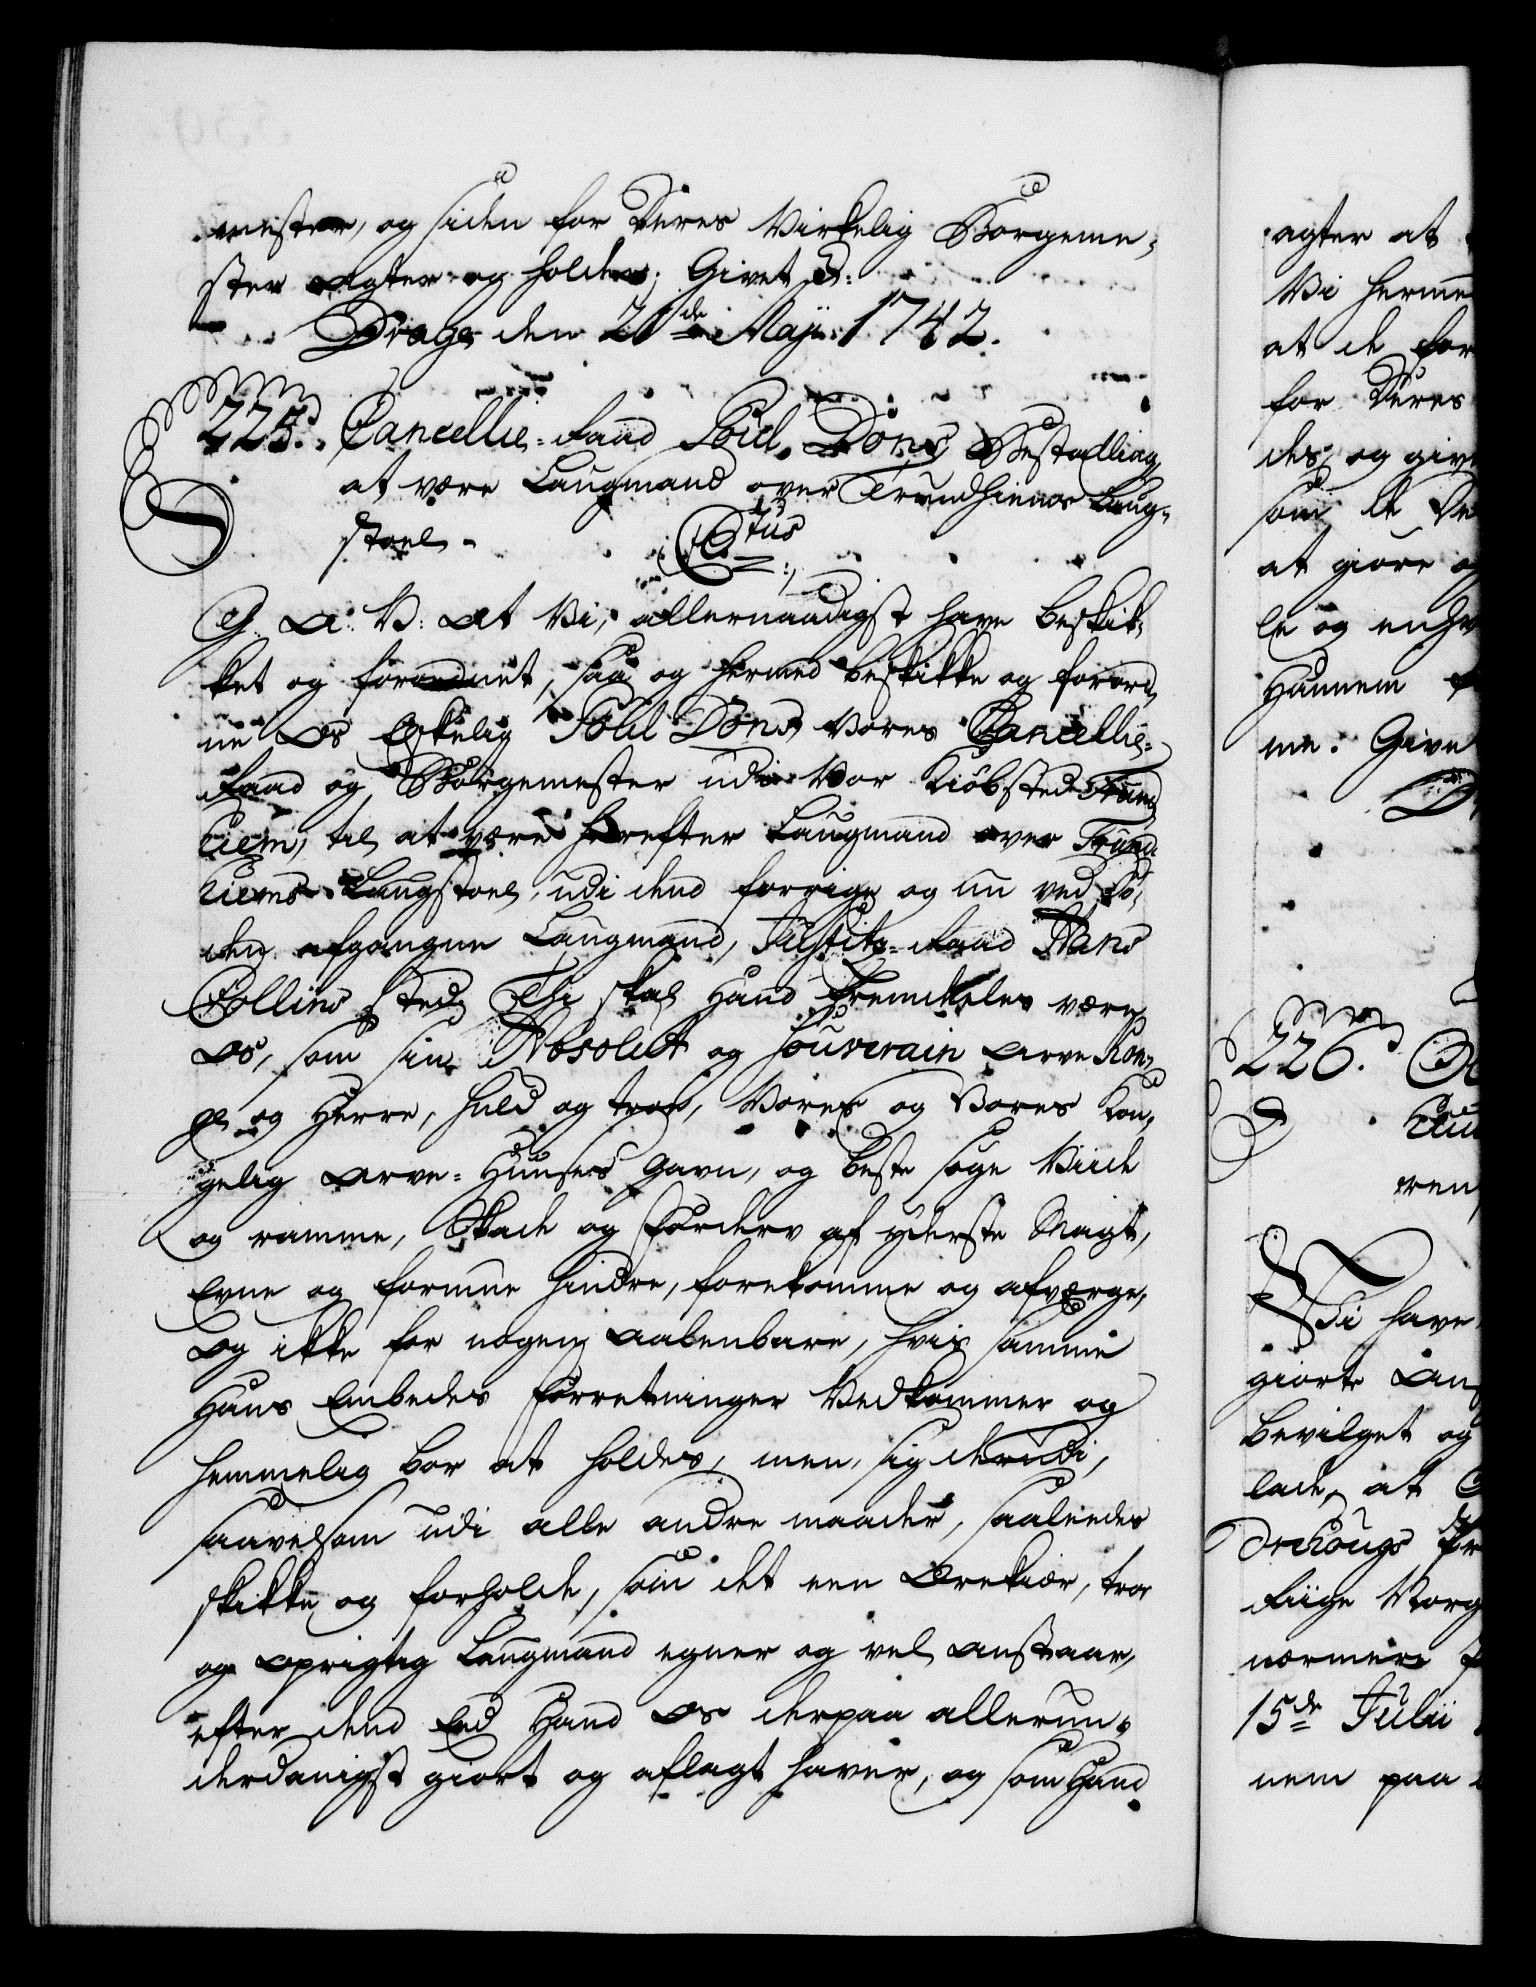 mester, og siden for Deres Virkelig Borgeme-
ster agter og holder; Givet p:
Drage den 21de Maji 1742.
225. Cancellie-Raad Poul Dons Bestalling
at være Laugmand over Trundhiems Laug-
stoel.
Ctus
G. A: V: At Vi, allernaadigst have beskik-
ket og forordnet, saa og hermed beskikke og forord-
ne Os Elskelig Poul Dons, Vores Cancellie-
Raad og Borgemester udi Vor Kiøbsted Trund-
hiem, til at være herefter Laugmand over Trund-
hiems Laugstoel, udi dend forrige og nu ved Dø-
den afgangne Laugmand, Justitz-Raad Hans
Collins sted; Thi skal Hand fremdeles være
Os, som sin Absolut og Souverain Arve Kon-
ge og Herre, huld og troe, Vores og Vores Kon-
gelig Arve-Huuses gavn, og beste søge Viide
og ramme, Skade og Forderv af yderste Magt,
Evne og formue hindre, forekomme og afværge,
Og ikke for nogen aabenbare, hvis samme
Hans Embedes Forretninger Vedkommer og
hemmelig bør at holdes, men sig derudi,
saavelsom udi alle andre maader, saaledes
skikke og forholde, som det een Ærekiær, troe
og oprigtig Laugmand egner og vel anstaar,
efter dend Eed Hand Os derpaa allerun-
derdanigst giort og aflagt haver, og som Hand
agter at
Vi herme
at de for
for Deres
des, og give
som de Ve
at giøre og
le og enhv
Hannem
me. Give
D
226.
ren
Vi have
giorte An
bevilget og
lade, at
Fiige Borg
nærmere
15de Julii
nem paa